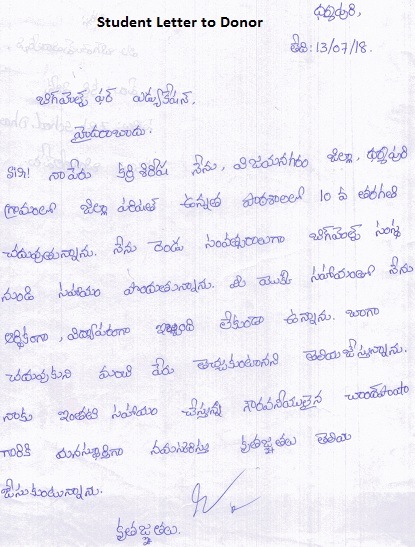 Student Letter to Donor
ధర్మపురి,
తేది: 13/07/18.
బిగ్‌మెల్ట్స్ ఫర్ ఎడ్యుకేషన్,
హైదరాబాదు.
సార్! నా పేరు కర్రి శిరీష నేను, విజయనగరం జిల్లా, ధర్మపురి
గ్రామంలో జిల్లా పరిషత్ ఉన్నత పాఠశాలలో 10 వ తరగతి
చదువుతున్నాను. నేను రెండు సంవత్సరాలుగా బిగ్‌మెల్ట్స్ సంస్థ
నుండి సహాయం పొందుతున్నాను. మీ యొక్క సహాయంతో నేను
ఆర్థికంగా, విద్యాపరంగా ఇబ్బంది లేకుండా ఉన్నాను. బాగా
చదువుకుని మంచి పేరు తెచ్చుకుంటానని తెలియజేస్తున్నాను.
నాకు ఇంతటి సహాయం చేస్తున్న గౌరవనీయులైన
గారికి మనస్ఫూర్తిగా నమస్కరిస్తూ కృతజ్ఞతలు తెలియ
జేసుకుంటున్నాను.
కృతజ్ఞతలు.